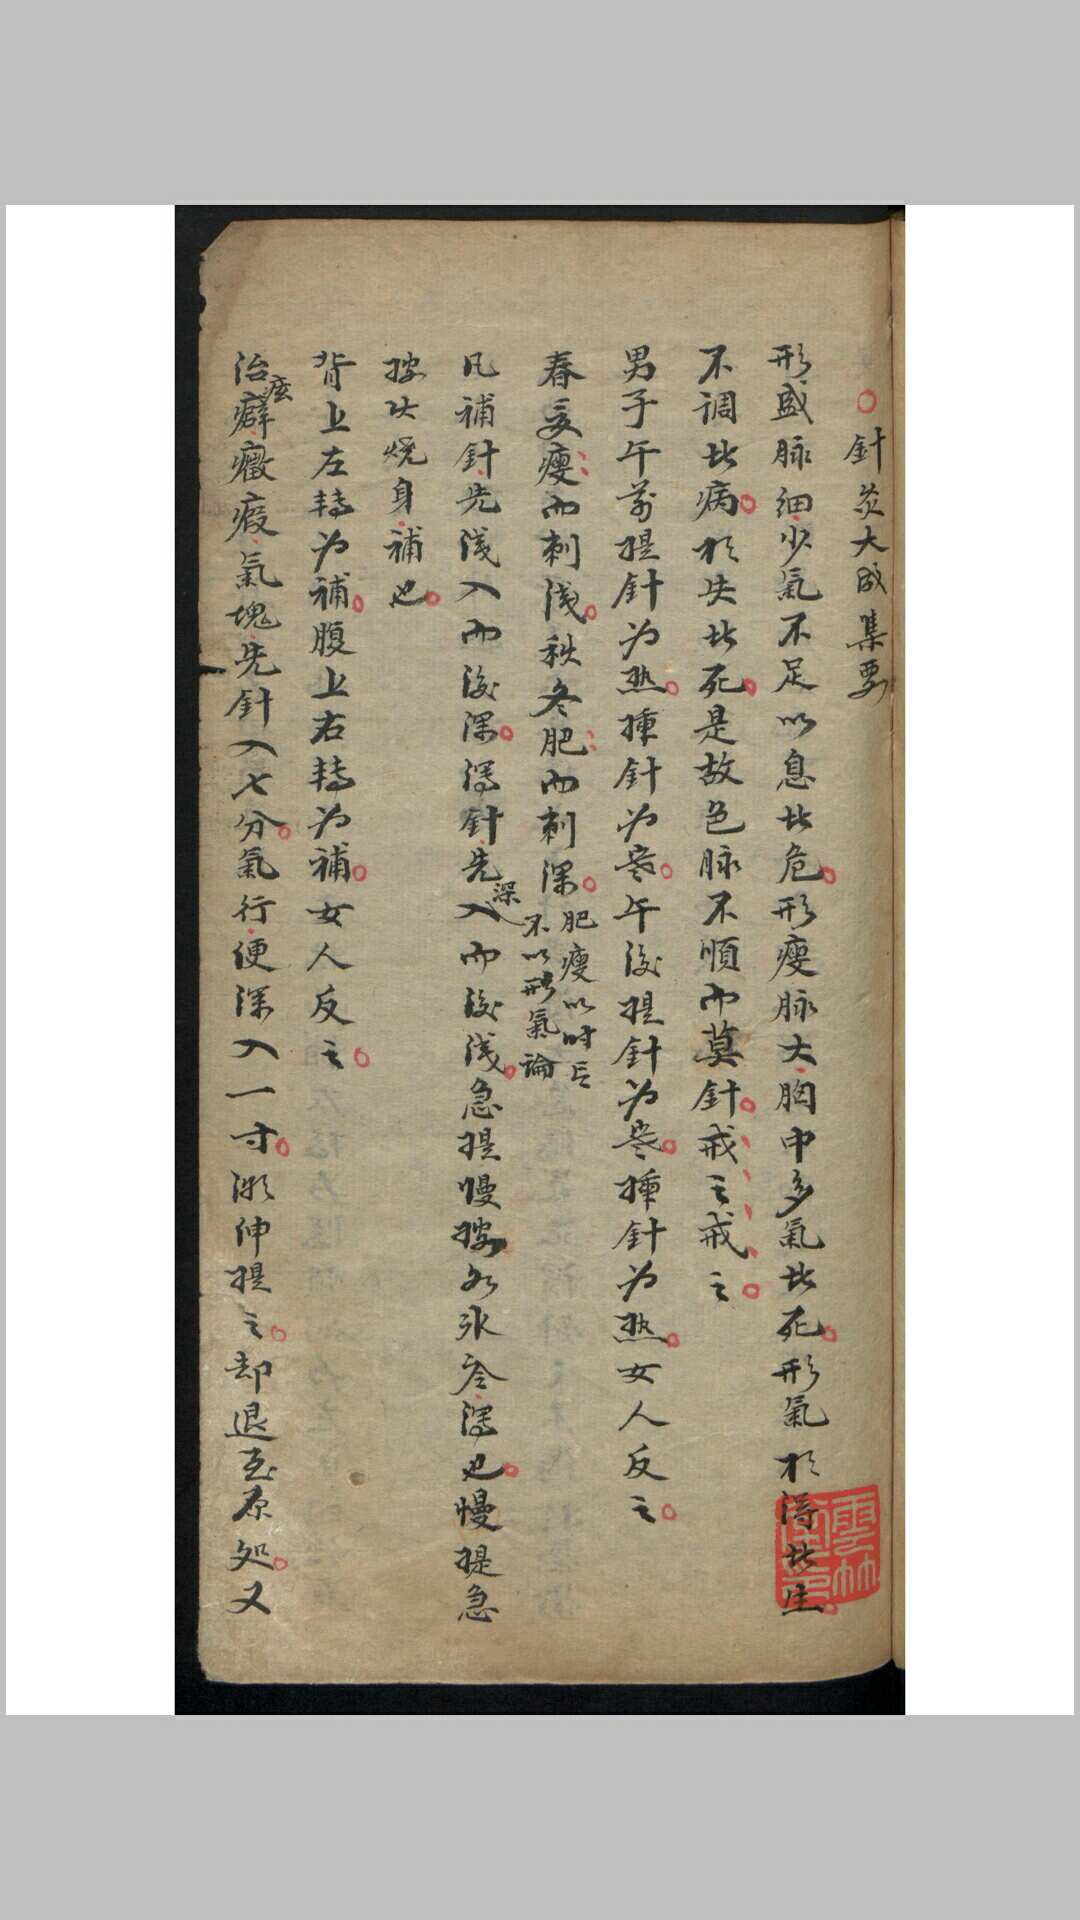 針灸大成集要
形盛脉細少氣不足以息此危形瘦脉大胸中多氣此死形氣相得此生
不調此病相失此死是故色脉不順而莫針戒之戒之
男子午前提針为熱揷針为寒午後提針为寒揷針为熱女人反之
春夏瘦而刺淺秋冬肥而刺深
肥瘦以时言
不以形氣論
凡補針先淺入而後深瀉針先深入而後淺急提慢按如氷冷瀉也慢提急
按火燒身補也
背上左轉为補腹上右轉为補女人反之
治痃癖癥瘕氣塊先針入七分氣行便深入一寸漸伸提之却退至原処又
雲林